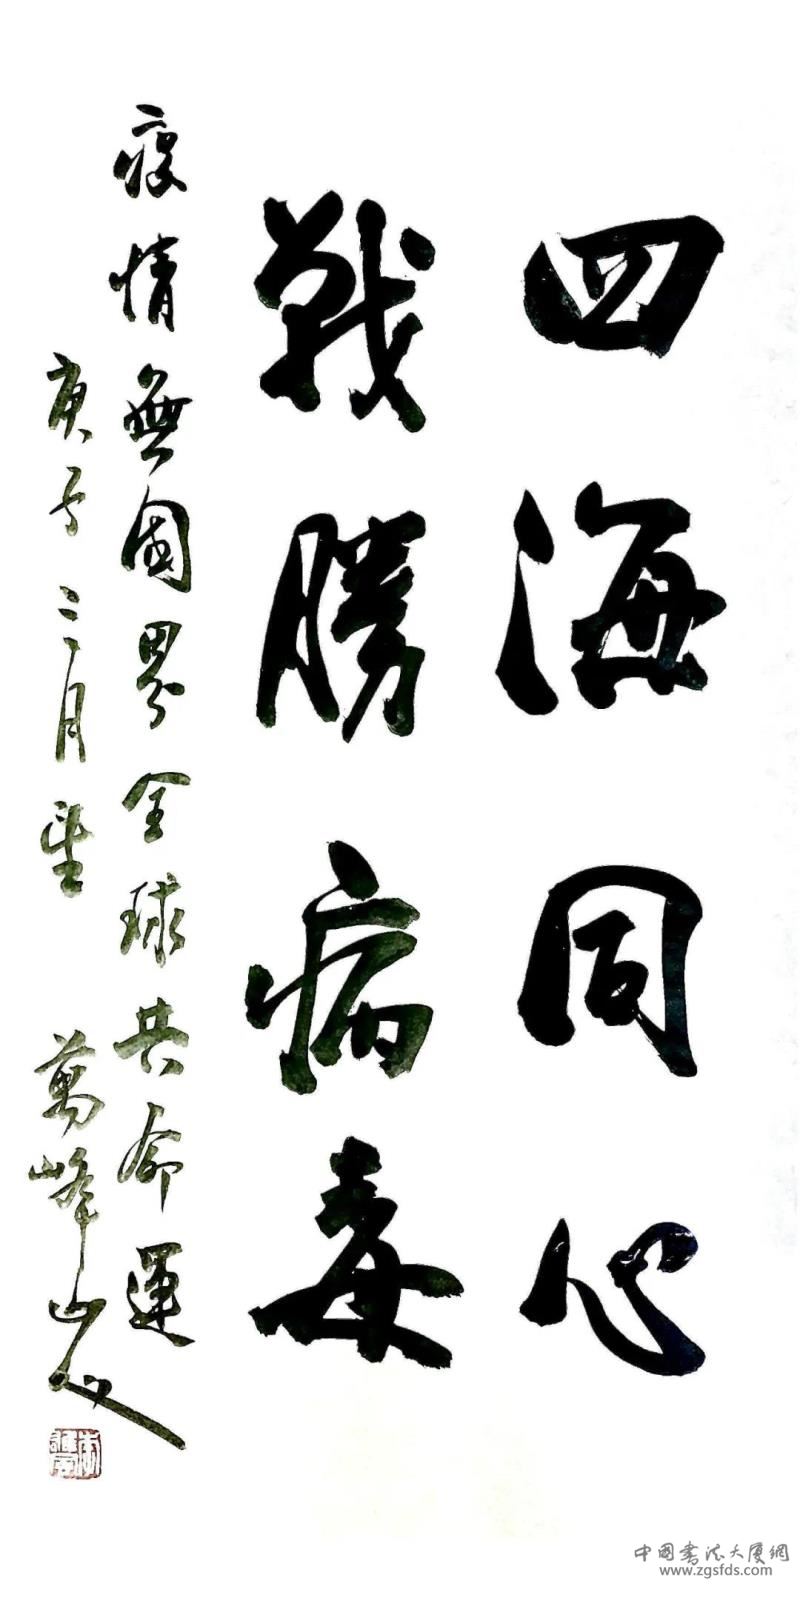 四海同心
戰勝病毒
疫情無國界全球共命運
庚子三月書
萬峰山人
中國書法大厦網
www.zgsfds.com